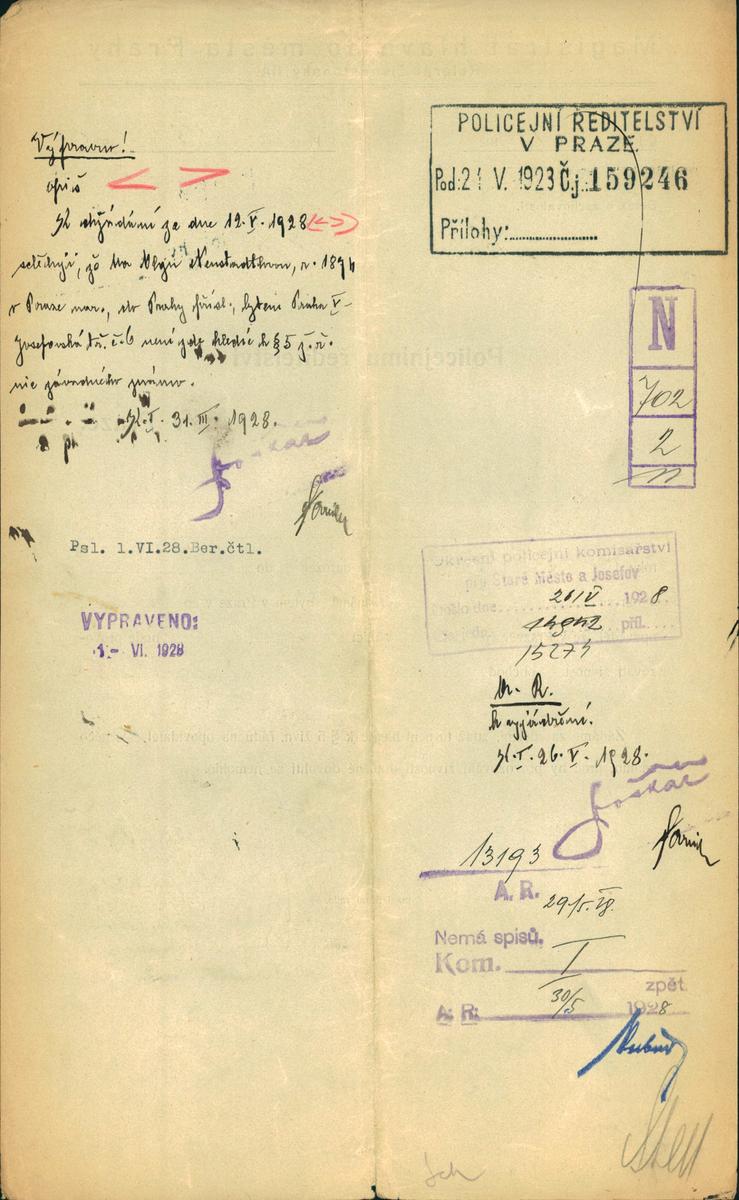 Výpravno!
opis
K vyžádání ze dne 12.V.1928
sděluji, že na Olgu Neustadtlovou, n. 1896
v Praze nar., do Prahy přísl., bytem Praha V-
Josefovská tř. č. 6 není zde hledíc k § 5 ž. ř.
nic závadného známo.
K.I. 31. III. 1928.
Psl. 1.VI.28.Ber.čtl.
VYPRAVENO:
1 - VI. 1928
POLICEJNÍ ŘEDITELSTVÍ
V PRAZE.
Pod: 21 V. 1923 Č.j.: 159246
Přílohy:
N
702
2
11
Okresní policejní komisařství
pro Staré Město a Josefov
Došlo dne 26/V 1928
Čís. jedn. příl.
15273
A. R.
k vyjádření.
K.I. 26. V. 1928.
13193
A. R. 29/5. 28.
Nemá spisů.
Kom. I
zpět.
A. R. 30/5 1928